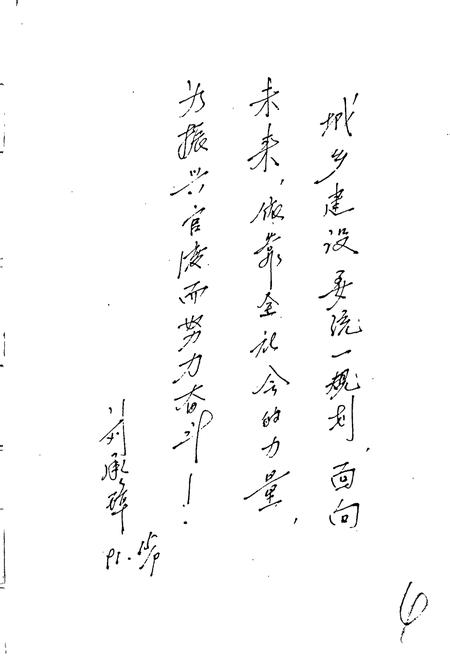 城乡建设要统一规划，面向
未来，依靠全社会的力量，
为振兴官陵而努力奋斗！
刘承璋
91.